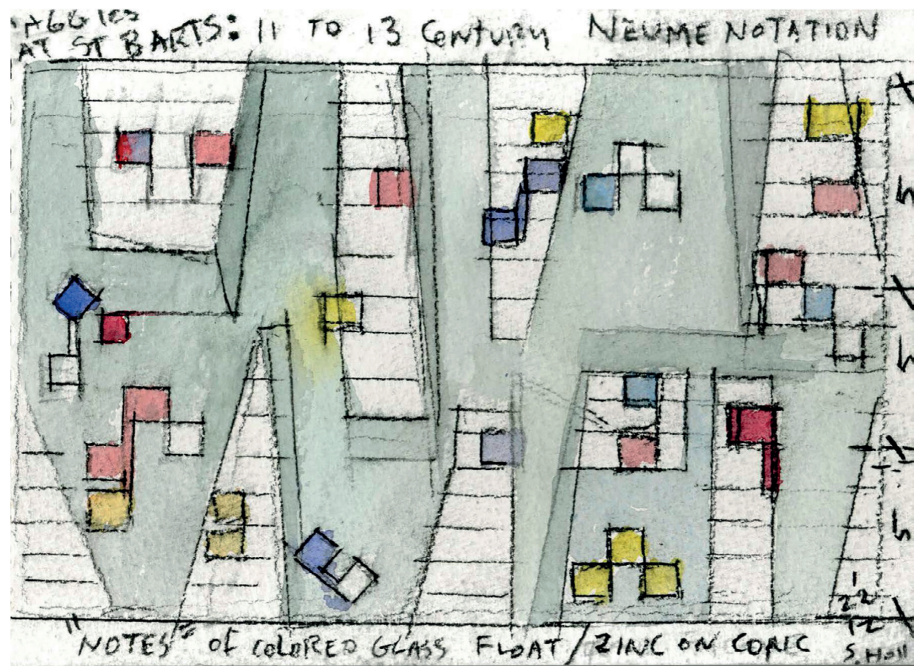 "AGGIES
AT ST BARTS: 11 TO 13 CENTURY NEUME NOTATION
"NOTES" OF COLORED GLASS FLOAT/ZINC ON CONC
S. Holl